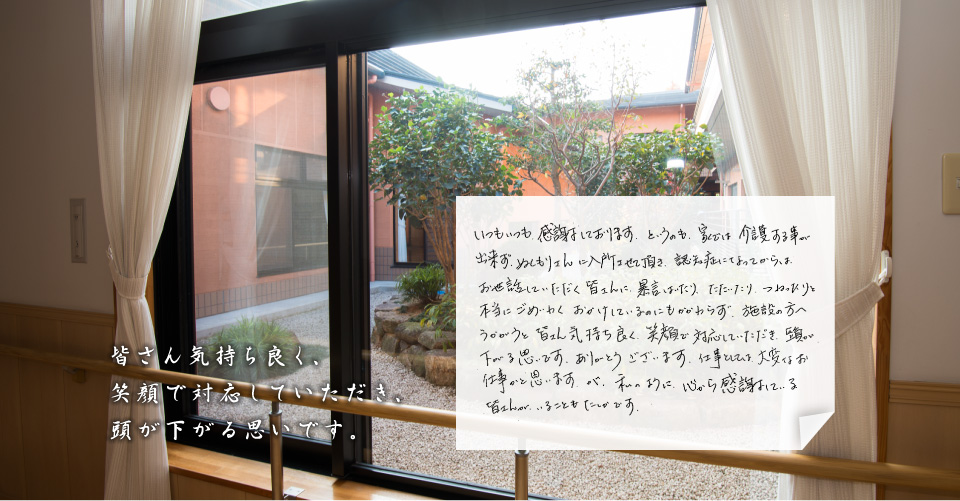 皆さん気持ち良く、
笑顔で対応していただき、
頭が下がる思いです。
いつもいつも、感謝しております。というのも、家では介護する事が
出来ず、ぬくもりさんに入所させて頂き、認知症になってからは、
お世話していただく皆さんに、暴言はいたり、たたいたり、つねったりと
本当にごめいわくおかけしているのにもかかわらず、施設の方へ
うかがうと皆さん気持ち良く、笑顔で対応していただき、頭が
下がる思いです。ありがとうございます。仕事としては、大変なお
仕事かと思います。が、私の様に、心から感謝している
皆さんが、いることもたしかです。